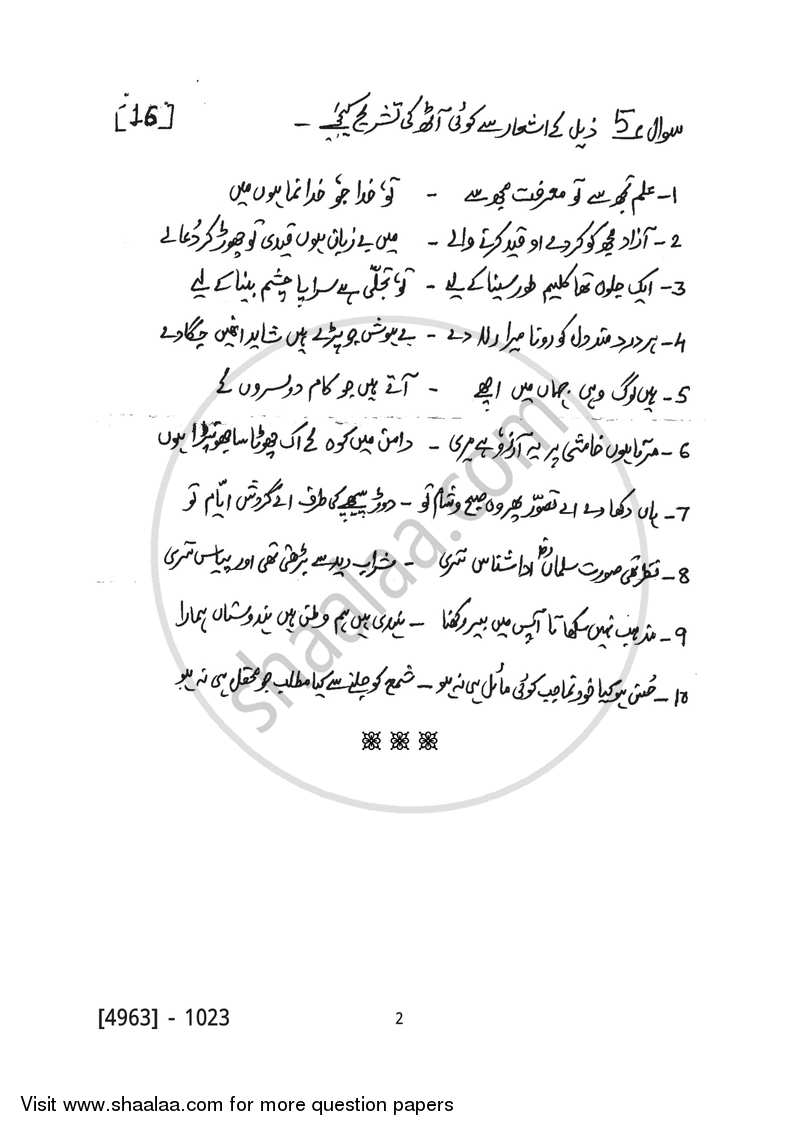 سوال 5 ذیل کے اشعار سے کوئی آٹھ کی تشریح کیجئے - [16]
1- علم تجھ سے تو معرفت مجھ سے - تو خدا جو خدا نما ہوں میں
2- آزاد مجھ کو کر دے او قید کرنے والے - میں بے زباں ہوں قیدی تو چھوڑ کر دعا لے
3- ایک جلوہ تھا کلیم طور سینا کے لیے - تو تجلّی ہے سراپا چشم بینا کے لیے
4- ہر درد مند دل کو رونا میرا رلا دے - بے ہوش جو پڑے ہیں شاید انھیں جگا دے
5- ہیں لوگ وہی جہاں میں اچھے - آتے ہیں جو کام دوسروں کے
6- مرتا ہوں خامشی پر یہ آرزو ہے مری - دامن میں کوہ کے اک چھوٹا سا جھونپڑا ہوں
7- ہاں دکھا دے اے تصوّر پھر وہ صبح و شام تو - دوڑ پیچھے کی طرف اے گردش ایّام تو
8- نظر تھی صورت سلماں ادا شناس تری - شراب دید سے بڑھتی تھی اور پیاس تری
9- مذہب نہیں سکھاتا آپس میں بیر رکھنا - ہندی ہیں ہم وطن ہیں ہندوستاں ہمارا
10- حسن ہو کیا خود نما جب کوئی مائل ہی نہ ہو - شمع کو جلنے سے کیا مطلب جو محفل ہی نہ ہو
shaalaa.com
[4963] - 1023
2
Visit www.shaalaa.com for more question papers